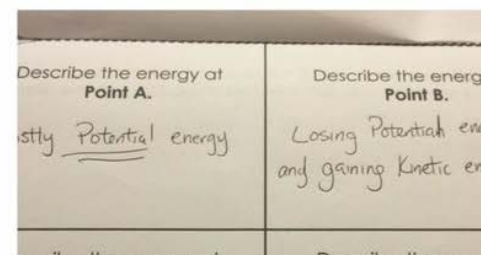 Describe the energy at
Point A.
stly Potential energy
Describe the energ
Point B.
Losing Potential en
and gaining Kinetic en